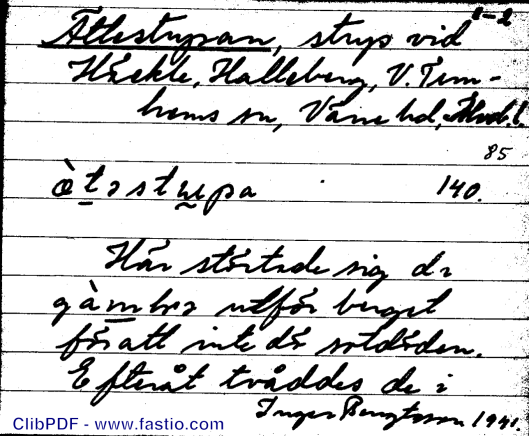 1-2
Ättestupan, stup vid
Häckle, Halleberg, V. Tun-
hems sn, Väne hd,
85
140.
Här störtade sig de
utför berget
för att inte dö sotdöden.
Efteråt tvåddes de i
Inger Bengtsson 1941.
ClibPDF - www.fastio.com